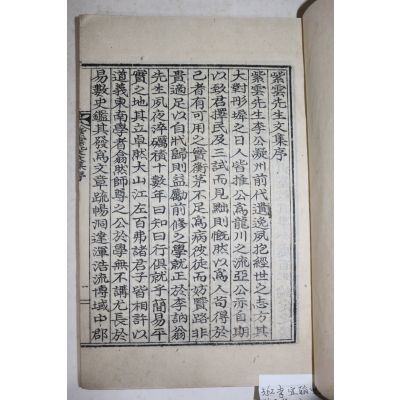 紫雲先生文集序
紫雲先生李公凝州前代遺逸夙抱經世之志方其
大對彤墀之日人皆推公爲龍川之流亞公亦自期
以致君擇民及三試而見黜則慨然以爲人苟得於
己者有可用之實衡茅不足爲病彼徒而妨賢路非
貴適足以自狀歸則益勵前修之學就正於李訥翁
先生夙夜淬礪積十數年曰知曰行俱就乎簡易平
實之地其立卓然大山江左百弗諸君子皆相許以
道義東南學者翕然師尊之公於學無不講尤長於
易數史鑑其發爲文章疏暢洞達渾浩流博域中郡
紫雲文集序
一